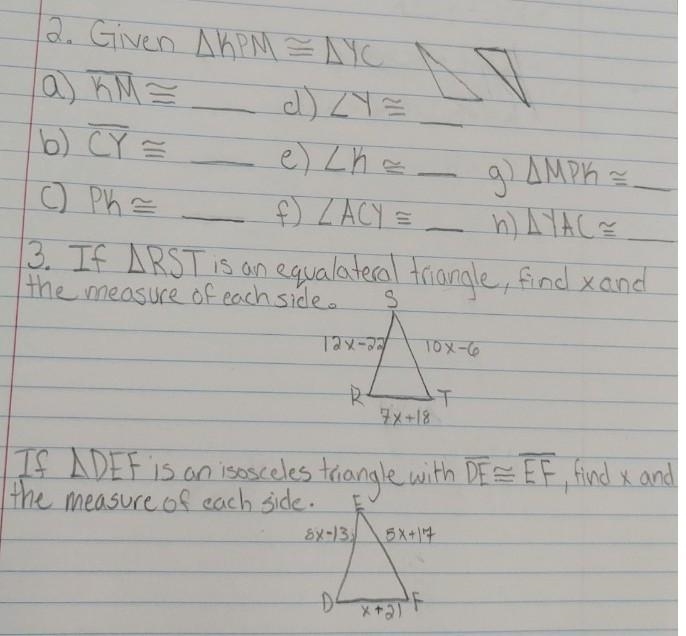 2. Given ΔKPM ≅ ΔYC
a) KM ≅ ___ d) ∠Y ≅ __
b) CY ≅ ___ e) ∠K ≅ __ g) ΔMPK ≅ __
c) PK ≅ ___ f) ∠ACY ≅ __ h) ΔYAC ≅ __
3. If ΔRST is an equalateral triangle, find x and
the measure of each side.
S
12x-22 10x-6
R T
7x+18
If ΔDEF is an isosceles triangle with DE ≅ EF, find x and
the measure of each side.
E
8x-13 5x+17
D F
x+21